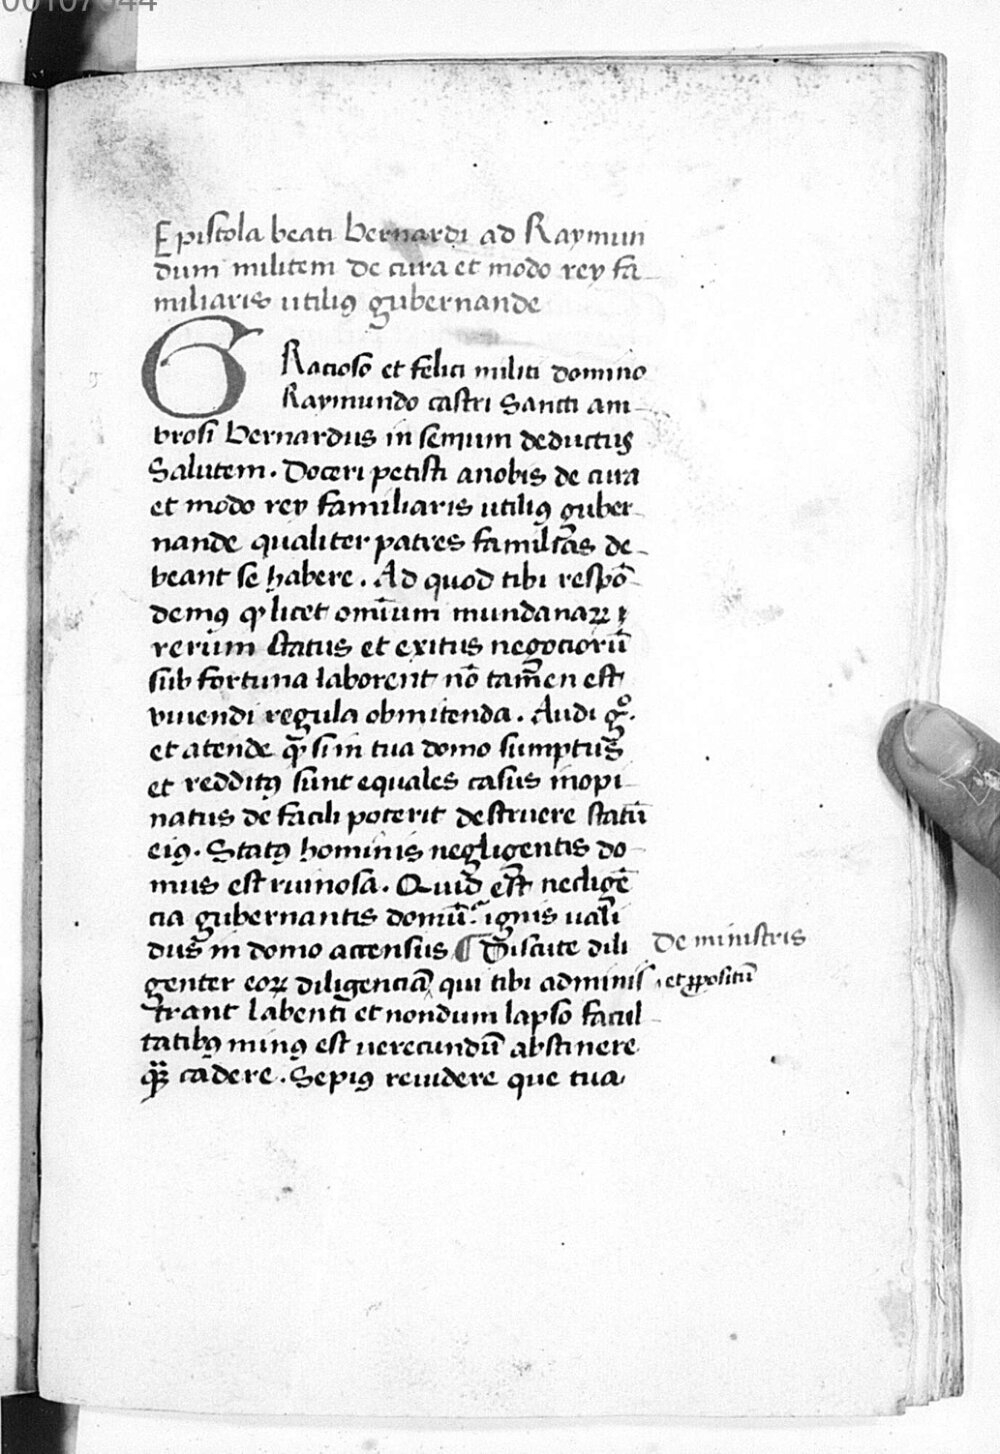 00107044
Epistola beati Bernardi ad Raymun
dum militem de cura et modo rey fa
miliaris utiliꝯ gubernande
GRacioso et felici militi domino
Raymundo castri Sancti am
brosi Bernardus in senium deductus
Salutem. Doceri petisti anobis de cura
et modo rey familiaris utiliꝯ guber
nande qualiter patres familias de
beant se habere. Ad quod tibi respō
demꝯ ꝙ licet omīum mundanaꝝ
rerum status et exitus negociorū
sub fortuna laborent nō tam̄en est
viuendi regula obmitenda. Audi gͦ.
et atende ꝙ si in tua domo sumptus
et redditꝯ sunt equales casus inopi
natus de facili poterit destruere statū
eiꝯ. Statꝯ hominis negligentis do
mus est ruinosa. Quid est necligē
cia gubernantis domū. ignis vali
dus in domo accensus ¶ Discute dili
genter eoꝝ diligenciā qui tibi adminis
trant labenti et nondum lapso facul
tatibꝯ minꝯ est verecundū abstinere
cadere. Sepiꝯ reuidere que tua
De ministris
et ꝓpositū